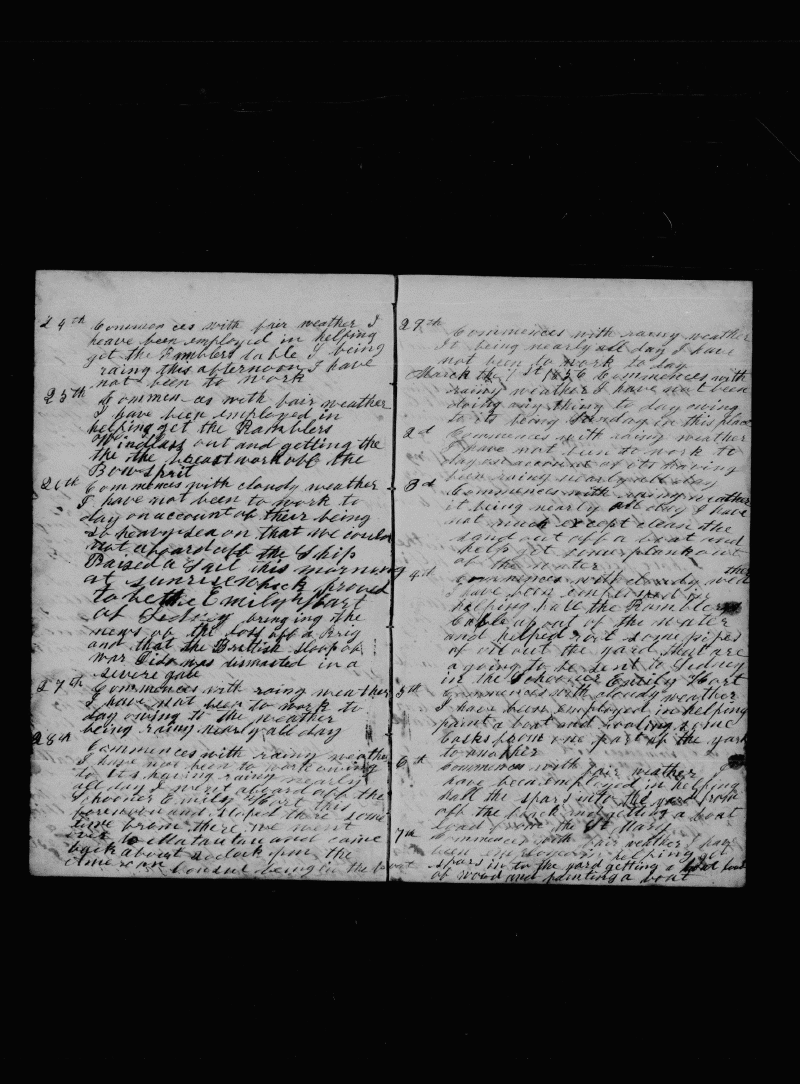 24th Commences with fair weather I
heave been employed in helping
get the Ramblers Cable I being
raing this afternoon I have
not been to work
25th Commences with fair weather
I have been employed in
helping get the Ramblers
Windlass out and getting the
the the breastwork off the
Bowsprit
26th Commences with cloudy weather
I have not been to work to
day on account of their being
so heavy sea on that we could
not aboard off the Ship
Raised a Sail this morning
at sunrise which proved
to be the Emily Hart
of Sidney bringing the
news of the loss off a Brig
and that the British Sloop of
war Dido was dismasted in a
severe gale
27th Commences with raing weather
I have not been to work to
day owing to the weather
being rainy nearly all day
28th
Commences with rainy weather
I have not been to work owing
to its having rainy nearly
all day I went aboard off the
Schooner Emily Hart this
forenoon and stoped there some
time from there we went
over to Matautau and came
back about o clock from the
American
Consul being in the boat
29th
Commences with rainy weather
It being nearly all day I have
not been to work to day
March the 1st 1856 Commences with
rainy weather I have not been
doing any thing to day owing
to its being Sunday in this place
2d Commences with raing weather
I have not been to work to
day on account of its having
been rainy nearly all day
3d Commences with rainy weather
it being nearly all day I have
not much except clean the
sand out off a boat and
help get some plank out
of the water
4th Commences with cloudy weather
I have been employed in
helping hall the Ramblers
Cable up out of the water
and helped sort some pipes
of oil out the yard that are
a going to be sent to Sidney
in the Schooner Emily Hart
5th Commences with cloudy weather
I have been employed in helping
paint a boat and cooling some
Casks from one part of the yard
to another
6th Commences with fair weather I
have been employed in helping
hall the spars into the yard from
off the beach and getting a boat
load from the St Mary
7th Commences with fair weather I have
been employed in helping get
spars in to the yard getting a boat load
of wood and painting a boat